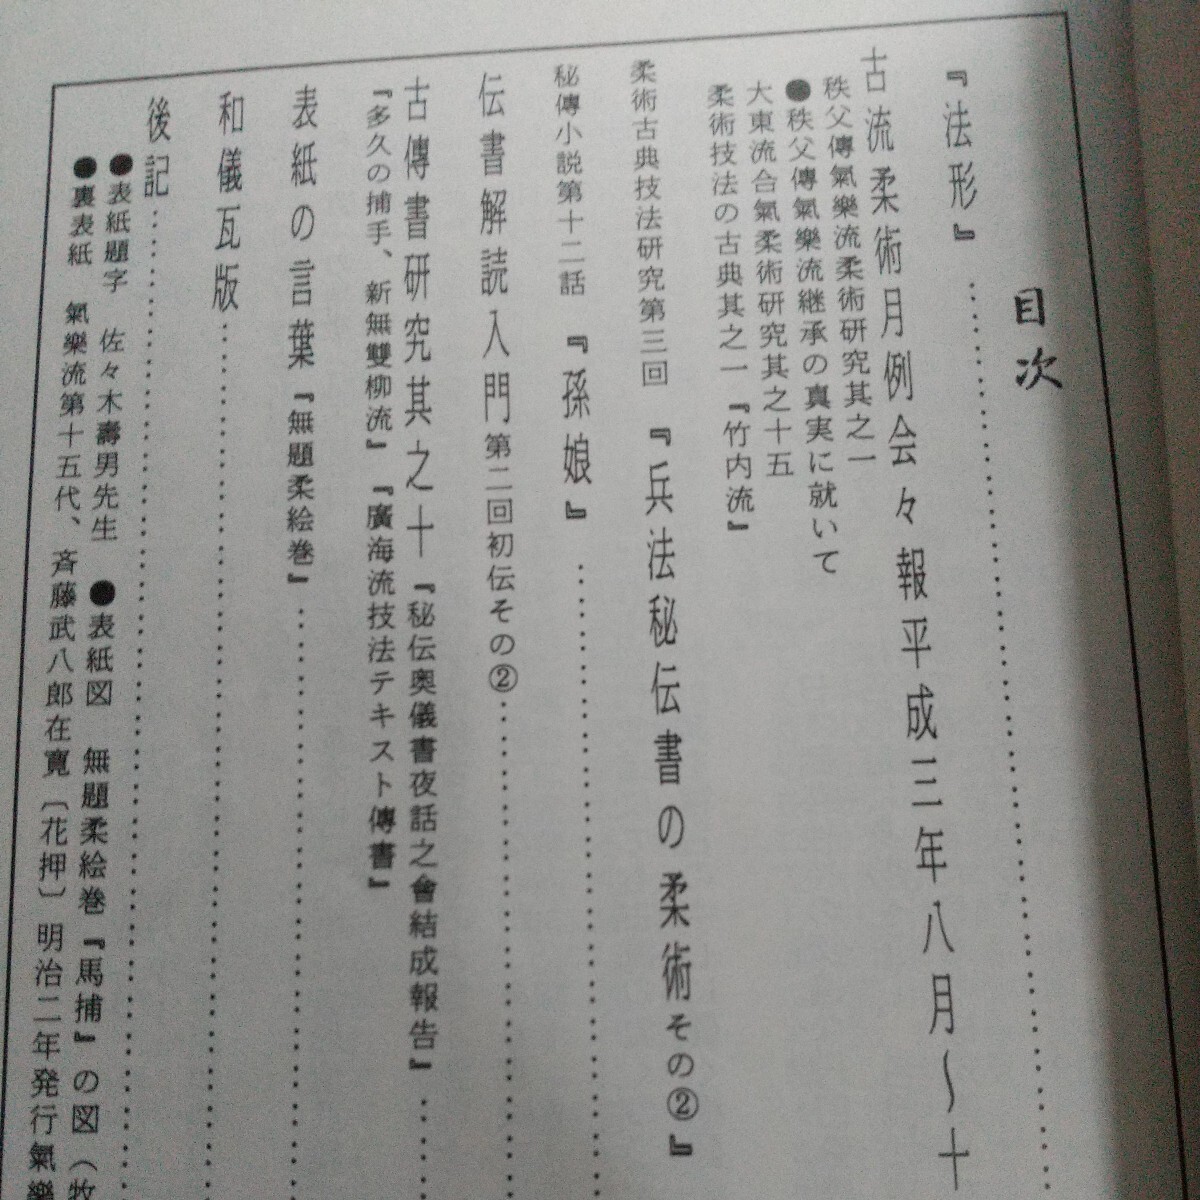 目次
『法形』
古流柔術月例会々報平成三年八月～十
秩父傳氣樂流柔術研究其之一
●秩父傳氣樂流継承の真実に就いて
大東流合氣柔術研究其之十五
柔術技法の古典其之一『竹内流』
柔術古典技法研究第三回『兵法秘伝書の柔術その②』
秘傳小説第十二話『孫娘』
伝書解読入門第二回初伝その②
古傳書研究其之十『秘伝奥儀書夜話之會結成報告』
『多久の捕手、新無雙柳流』『廣海流技法テキスト傳書』
表紙の言葉『無題柔絵巻』
和儀瓦版
後記
●表紙題字 佐々木壽男先生 ●表紙図 無題柔絵巻『馬捕』の図（牧
●裏表紙 氣樂流第十五代、斉藤武八郎在寛〔花押〕明治二年発行氣樂